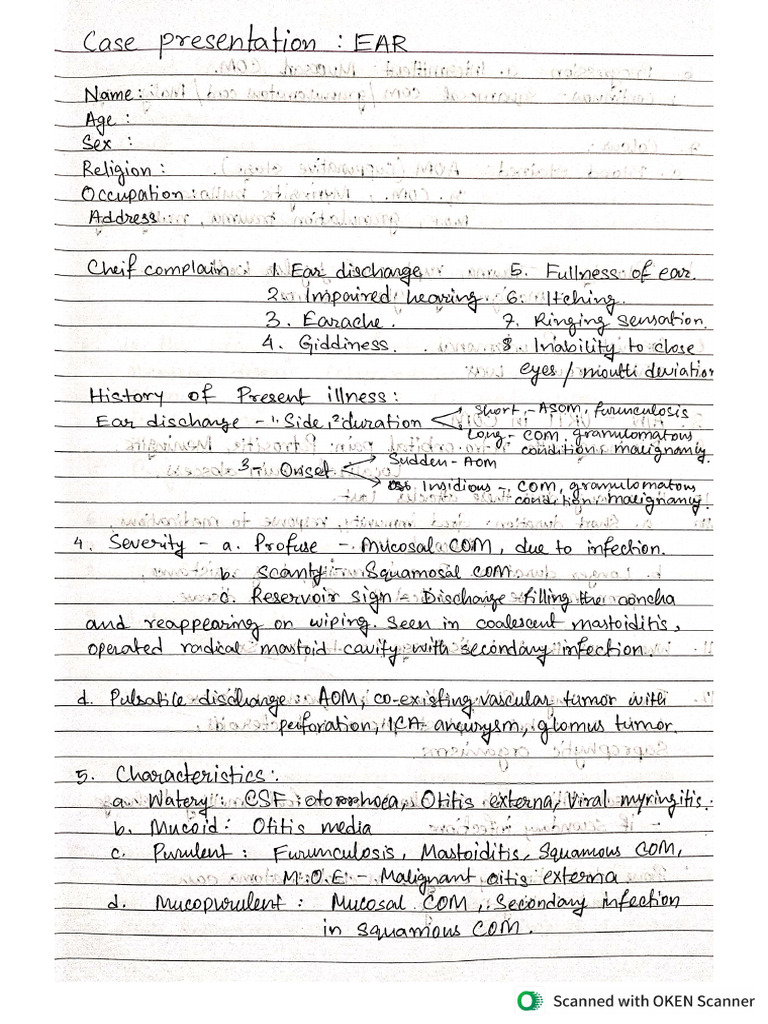 Case presentation : EAR
Name :
Age :
Sex :
Religion :
Occupation :
Address
Cheif complain 1. Ear discharge 5. Fullness of ear.
2. Impaired hearing 6. Itching.
3. Earache. 7. Ringing sensation.
4. Giddiness. 8. Inability to close
eyes / mouth deviation
History of Present illness :
Ear discharge - 1. Side, 2. duration short - ASOM, furunculosis
Long - COM, granulomatous
condition, malignancy.
3. Onset Sudden - AOM
Insidious - COM, granulomatous
condition, malignancy.
4. Severity - a. Profuse - Mucosal COM, due to infection.
b. scanty - Squamosal COM
c. Reservoir sign - Discharge filling the concha
and reappearing on wiping. Seen in coalescent mastoiditis,
operated radical mastoid cavity with secondary infection.
d. Pulsatile discharge : AOM, co-existing vascular tumor with
perforation, ICA aneurysm, glomus tumor.
5. Characteristics :
a. Watery : CSF otorrhoea, Otitis externa, Viral myringitis.
b. Mucoid : Otitis media
c. Purulent : Furunculosis, Mastoiditis, Squamous COM,
M.O.E - Malignant oitis externa.
d. Mucopurulent : Mucosal COM, Secondary infection
in squamous COM.
Scanned with OKEN Scanner